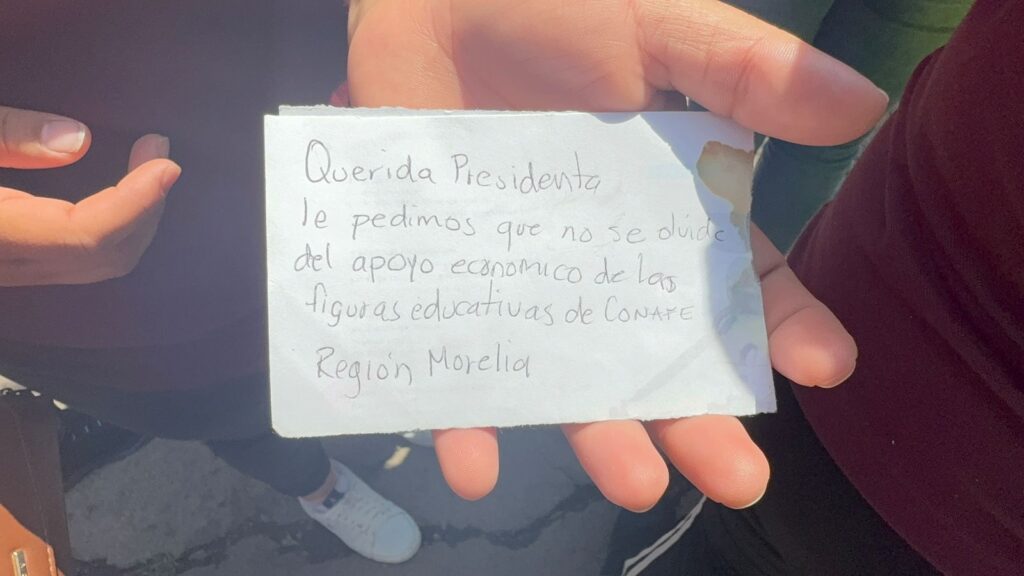 Querida Presidenta
le pedimos que no se olvide
del apoyo economico de las
figuras educativas de CONAFE
Región Morelia